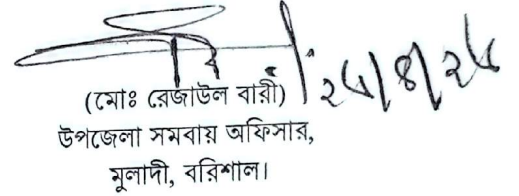 (মোঃ রেজাউল বারী)
উপজেলা সমবায় অফিসার,
মুলাদী, বরিশাল।